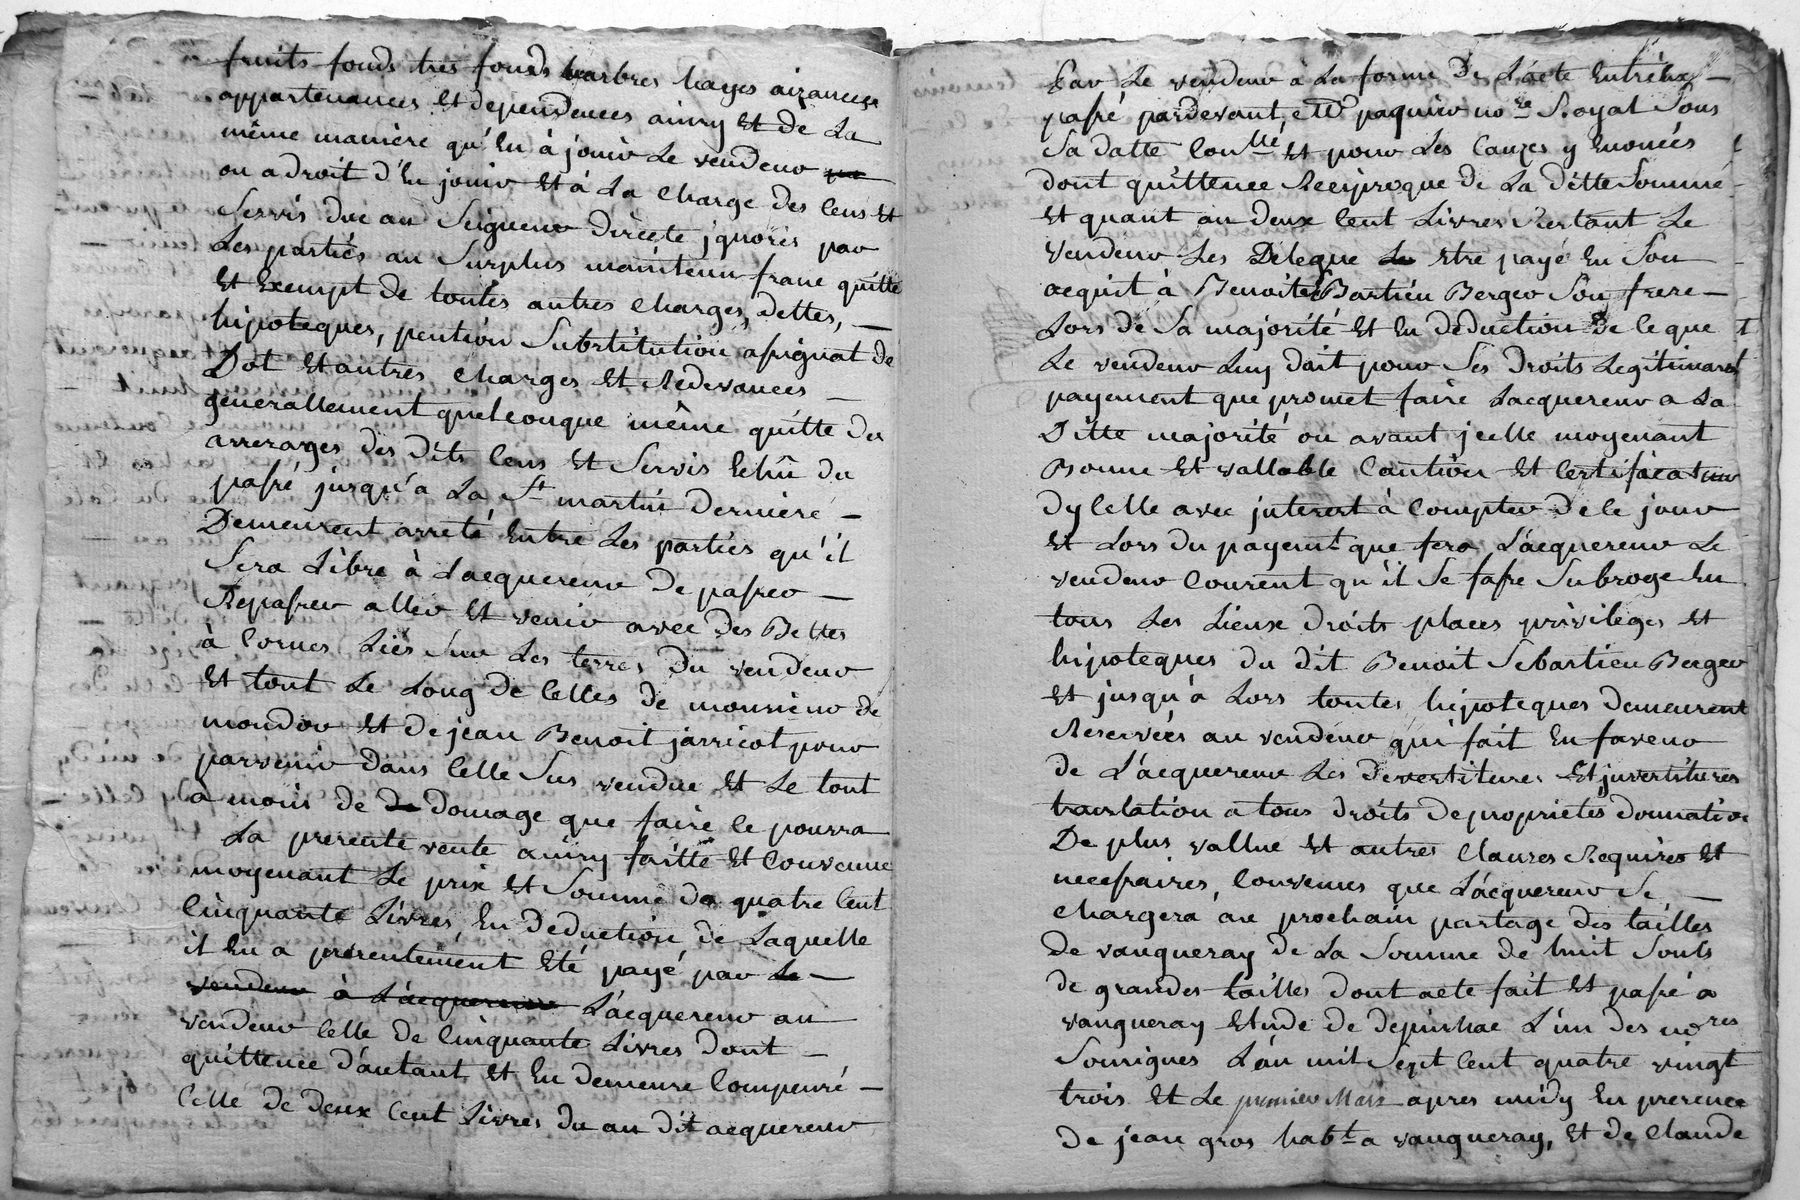 fruits fonds tres fonds arbres hayes aizances
appartenances Et dependences ainsy Et de La
même manière qu'En à jouir Le vendeur
ou a droit d'En jouir Et à La charge des Cens Et
Servis due au Seigneur directe jgnorés par
Les partiés au Surplus maintenu franc quitte
Et Exempt de toutes autres charges, dettes, —
hipoteques, pention Substitution assignat de
Dot Et autres charges Et Redevances —
generallement quelconque même quitte des
arrerages des dits Cens Et Servis Echû du
passé jusqu'a La St martin derniere —
Demeurent arreté Entre Les parties qu'il
Sera Libre à Lacquereur de passer —
Repasser aller Et venir avec des Bettes
à Cornes Liés Sur Les terres du vendeur
Et tout Le Long de Celles de monsieur de
mondor Et de jean Benoit jarricot pour
parvenir dans Celle Sus vendue Et Le tout
a moins de de domage que faire Ce pourra
La presente vente ainsy faitte Et Convenue
moyenant Le prix Et Somme de quatre Cent
Cinquante Livres, En deduction de Laquelle
il En a presentement Eté payé par Le —
vendeur à L'acquereur L'acquereur au
vendeur Celle de Cinquante Livres dont —
quittence d'autant Et En demeure Compensé —
Celle de deux Cent Livres du au dit acquereur
Par Le vendeur à La forme de L'acte Entréux —
passé pardevant Me paquiw nore Royal Sous
Sa datte Conlle Et pour Les Causes y Enoncés
dont quittence Reciproque de La ditte Somme
Et quant au deux Cent Livres Restant Le
vendeur Les Delegue Le Etre payé En Son
acquit à Benoit Sébastien Berger Son frere —
Lors de Sa majorité Et En deduction de Ce que
Le vendeur Luy doit pour Ses droits Legitimares
payement que promet faire Lacquereur a La
Ditte majorité ou avant jcelle moyenant
Bonne Et vallable Caution Et Certificateur
dyCelle avec jnterest à Compter de Ce jour
Et Lors du payemt que fera L'acquereur Le
vendeur Courent qu'il Se fasse Subroge En
tous Les Lieux droits places privileges Et
hipoteques du dit Benoit Sebastien Berger
Et jusqu'à Lors toutes hipoteques demeurent
Reservées au vendeur qui fait En faveur
de L'acquereur Les devestitures Et jnvestitures
translation a tous droits de propriétés donnation
De plus vallue Et autres Clauses Requises Et
necessaires, Convenus que Lacquereur Se —
chargera au prochain partage des tailles
de vaugneray de La Somme de huit Souls
de grandes tailles dont acte fait Et passé a
vaugneray Etude de depinhac L'un des nores
Sousignes L'an mil Sept Cent quatre vingt
trois Et Le premier Mars apres midy En presence
de jean gros habt a vaugneray, Et de Claude